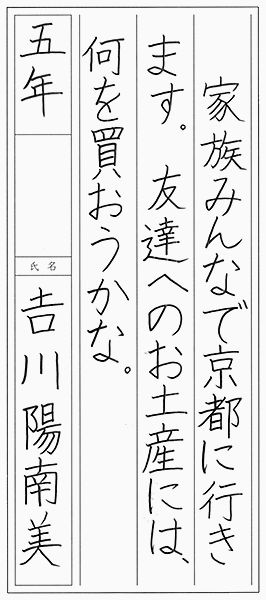 家族みんなで京都に行き
ます。友達へのお土産には、
何を買おうかな。
五年
氏名
吉川陽南美